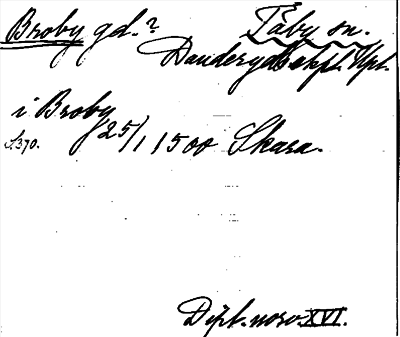 Broby gd.? Täby sn.
Danderyds skpl. Upl.
i Broby
S. 370. 25/1 1500 Skara.
Dipl. norv. XVI.